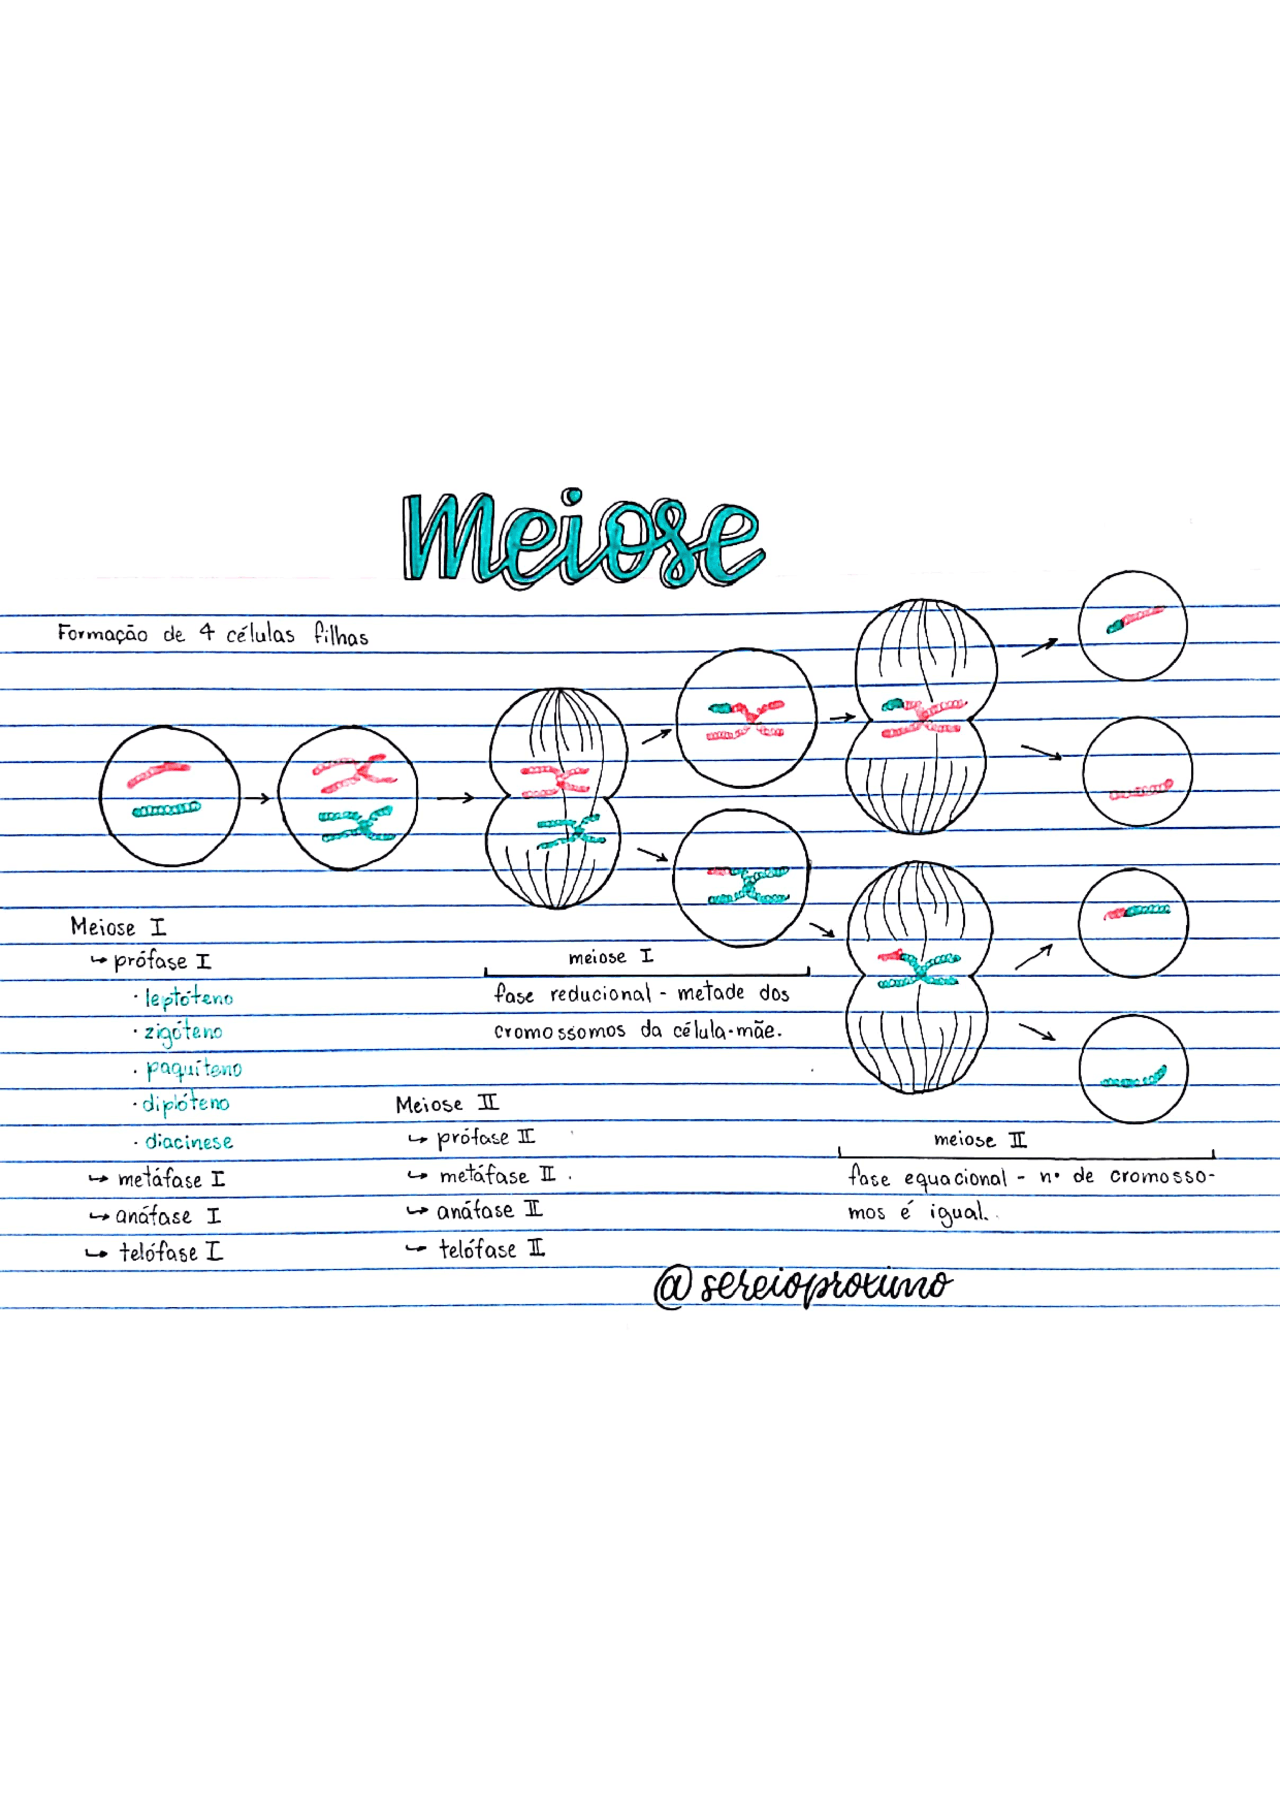 Meiose
Formação de 4 células filhas
Meiose I
↳ prófase I
· leptóteno
· zigóteno
· paquíteno
· diplóteno
· diacinese
↳ metáfase I
↳ anáfase I
↳ telófase I
meiose I
fase reducional - metade dos
cromossomos da célula-mãe.
Meiose II
↳ prófase II
↳ metáfase II
↳ anáfase II
↳ telófase II
meiose II
fase equacional - nº de cromosso-
mos é igual.
@sereioproximo